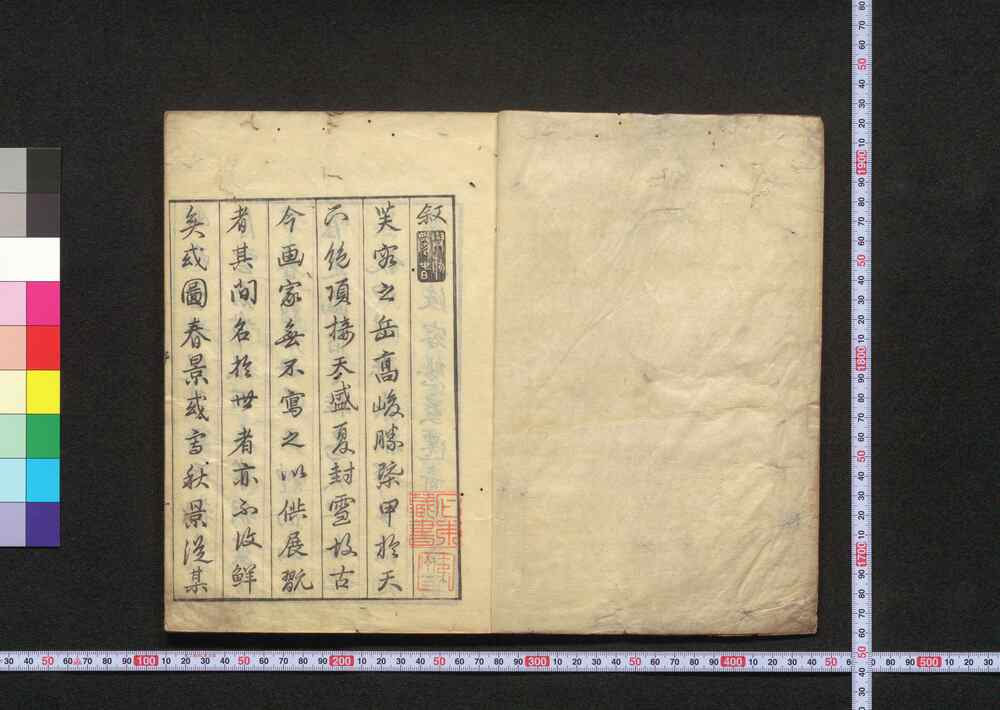 叙
芙容之岳高峻勝槩甲於天
下絶頂接天盛夏封雪故古
今画家無不寫之以供展翫
者其間名於世者亦不鮮
矣或圖春景或秋景從某
藏書